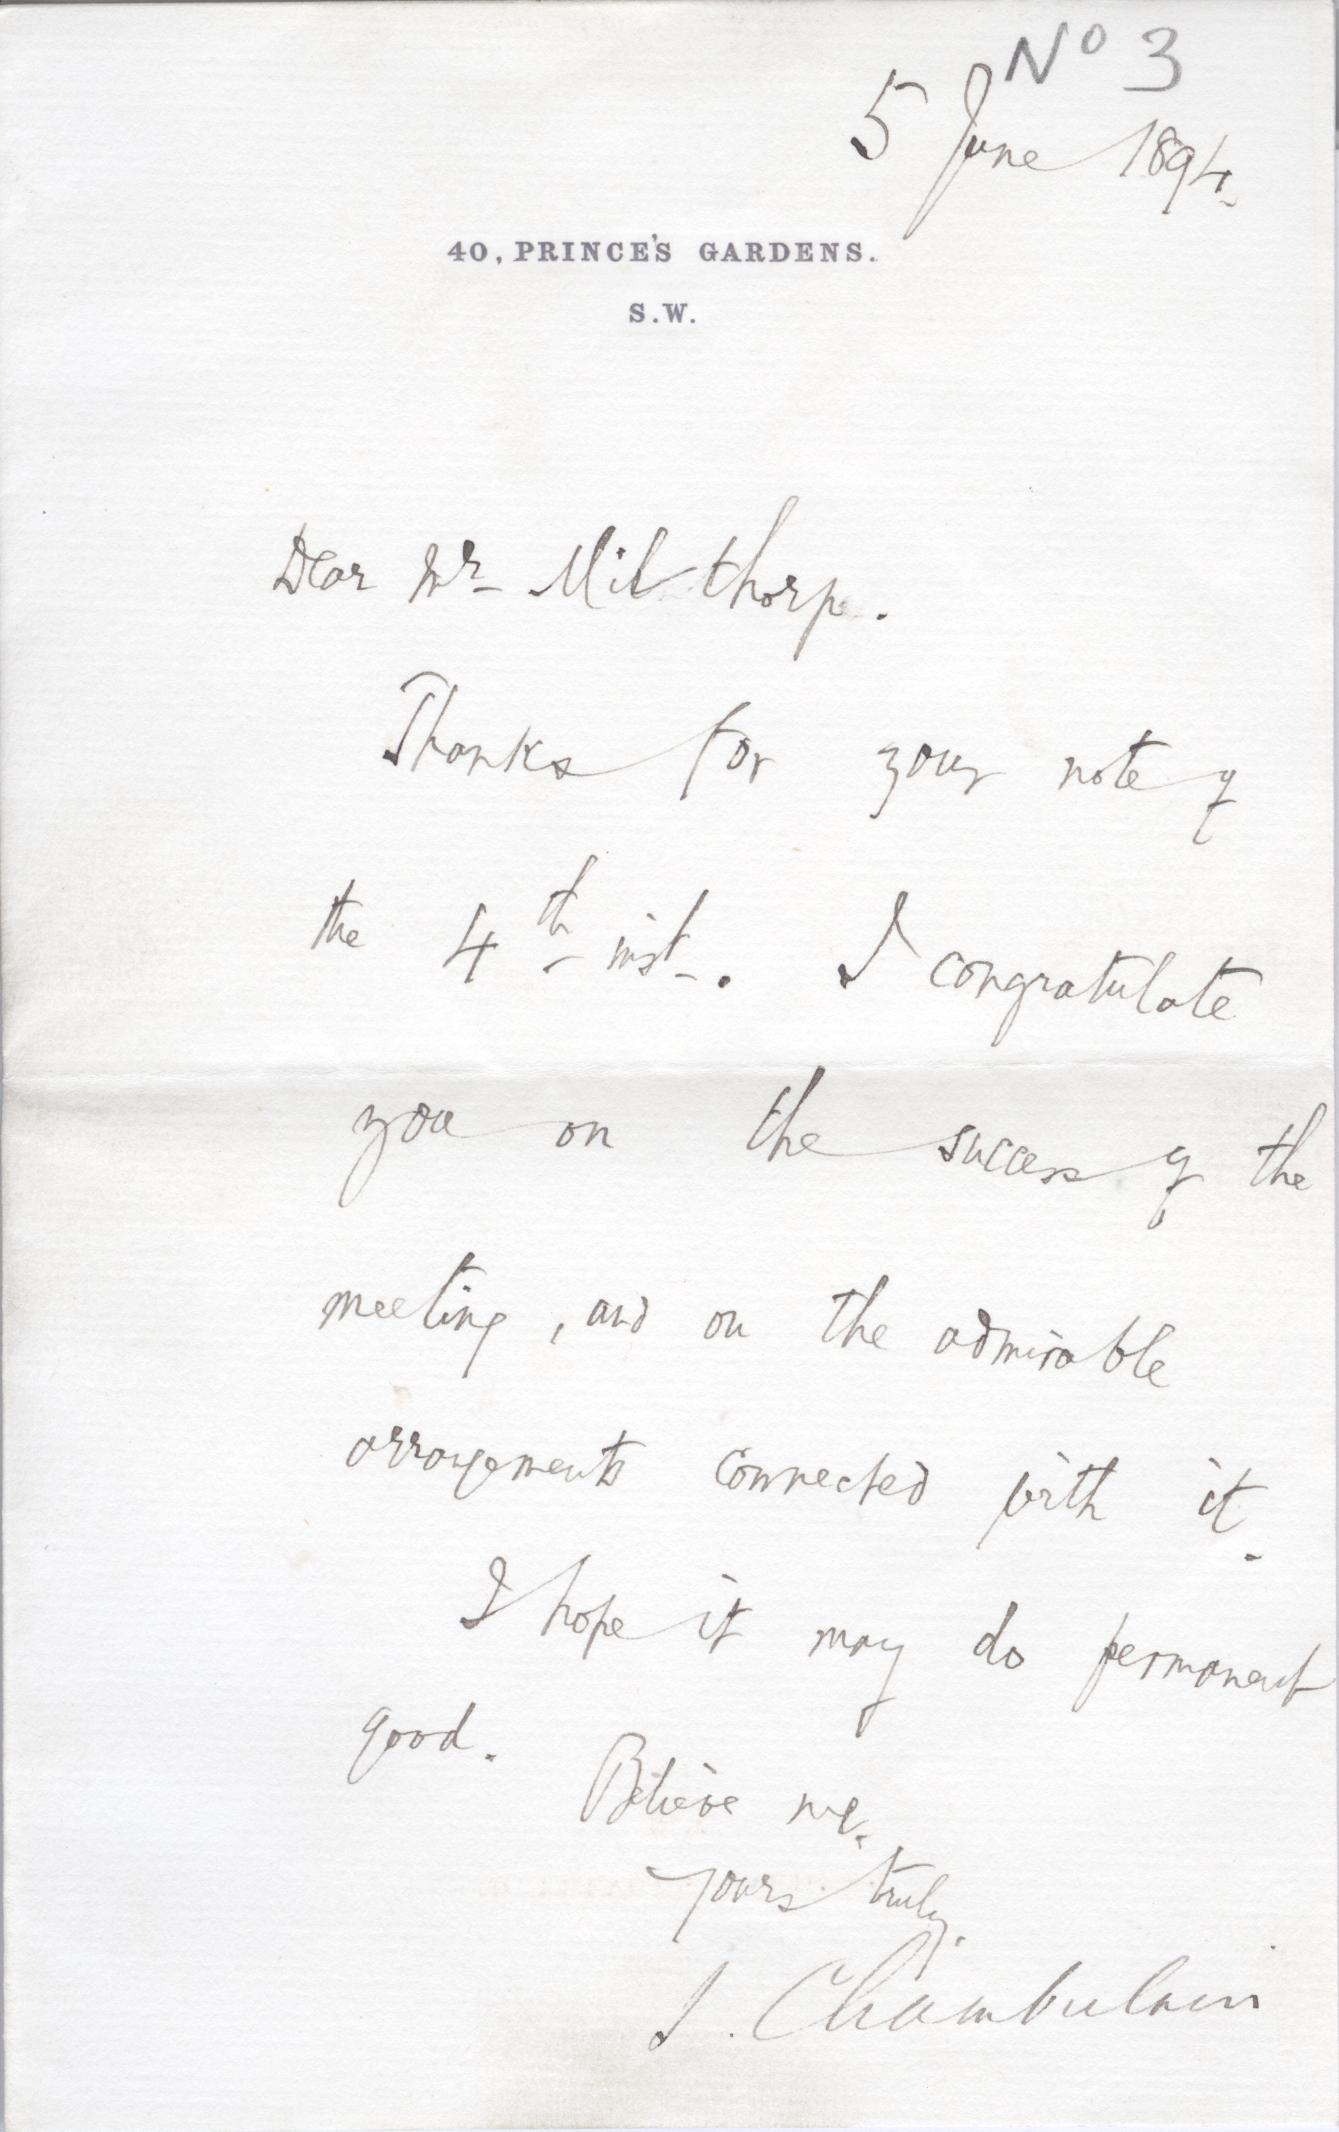 Nº 3
5 June 1894.
40, PRINCE'S GARDENS.
S.W.
Dear Mr Milthorp.
Thanks for your note of
the 4th inst. I congratulate
you on the success of the
meeting, and on the admirable
arrangements connected with it.
I hope it may do permanent
good.
Believe me.
Yours truly.
J. Chamberlain